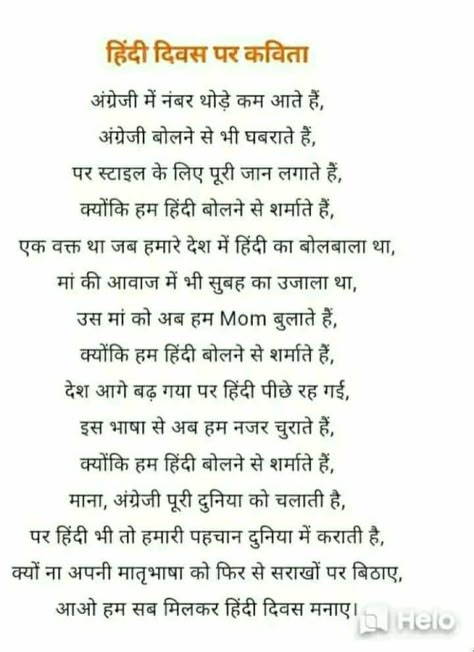 हिंदी दिवस पर कविता
अंग्रेजी में नंबर थोड़े कम आते हैं,
अंग्रेजी बोलने से भी घबराते हैं,
पर स्टाइल के लिए पूरी जान लगाते हैं,
क्योंकि हम हिंदी बोलने से शर्माते हैं,
एक वक्त था जब हमारे देश में हिंदी का बोलबाला था,
मां की आवाज में भी सुबह का उजाला था,
उस मां को अब हम Mom बुलाते हैं,
क्योंकि हम हिंदी बोलने से शर्माते हैं,
देश आगे बढ़ गया पर हिंदी पीछे रह गई,
इस भाषा से अब हम नजर चुराते हैं,
क्योंकि हम हिंदी बोलने से शर्माते हैं,
माना, अंग्रेजी पूरी दुनिया को चलाती है,
पर हिंदी भी तो हमारी पहचान दुनिया में कराती है,
क्यों ना अपनी मातृभाषा को फिर से सराखों पर बिठाए,
आओ हम सब मिलकर हिंदी दिवस मनाए।
Helo